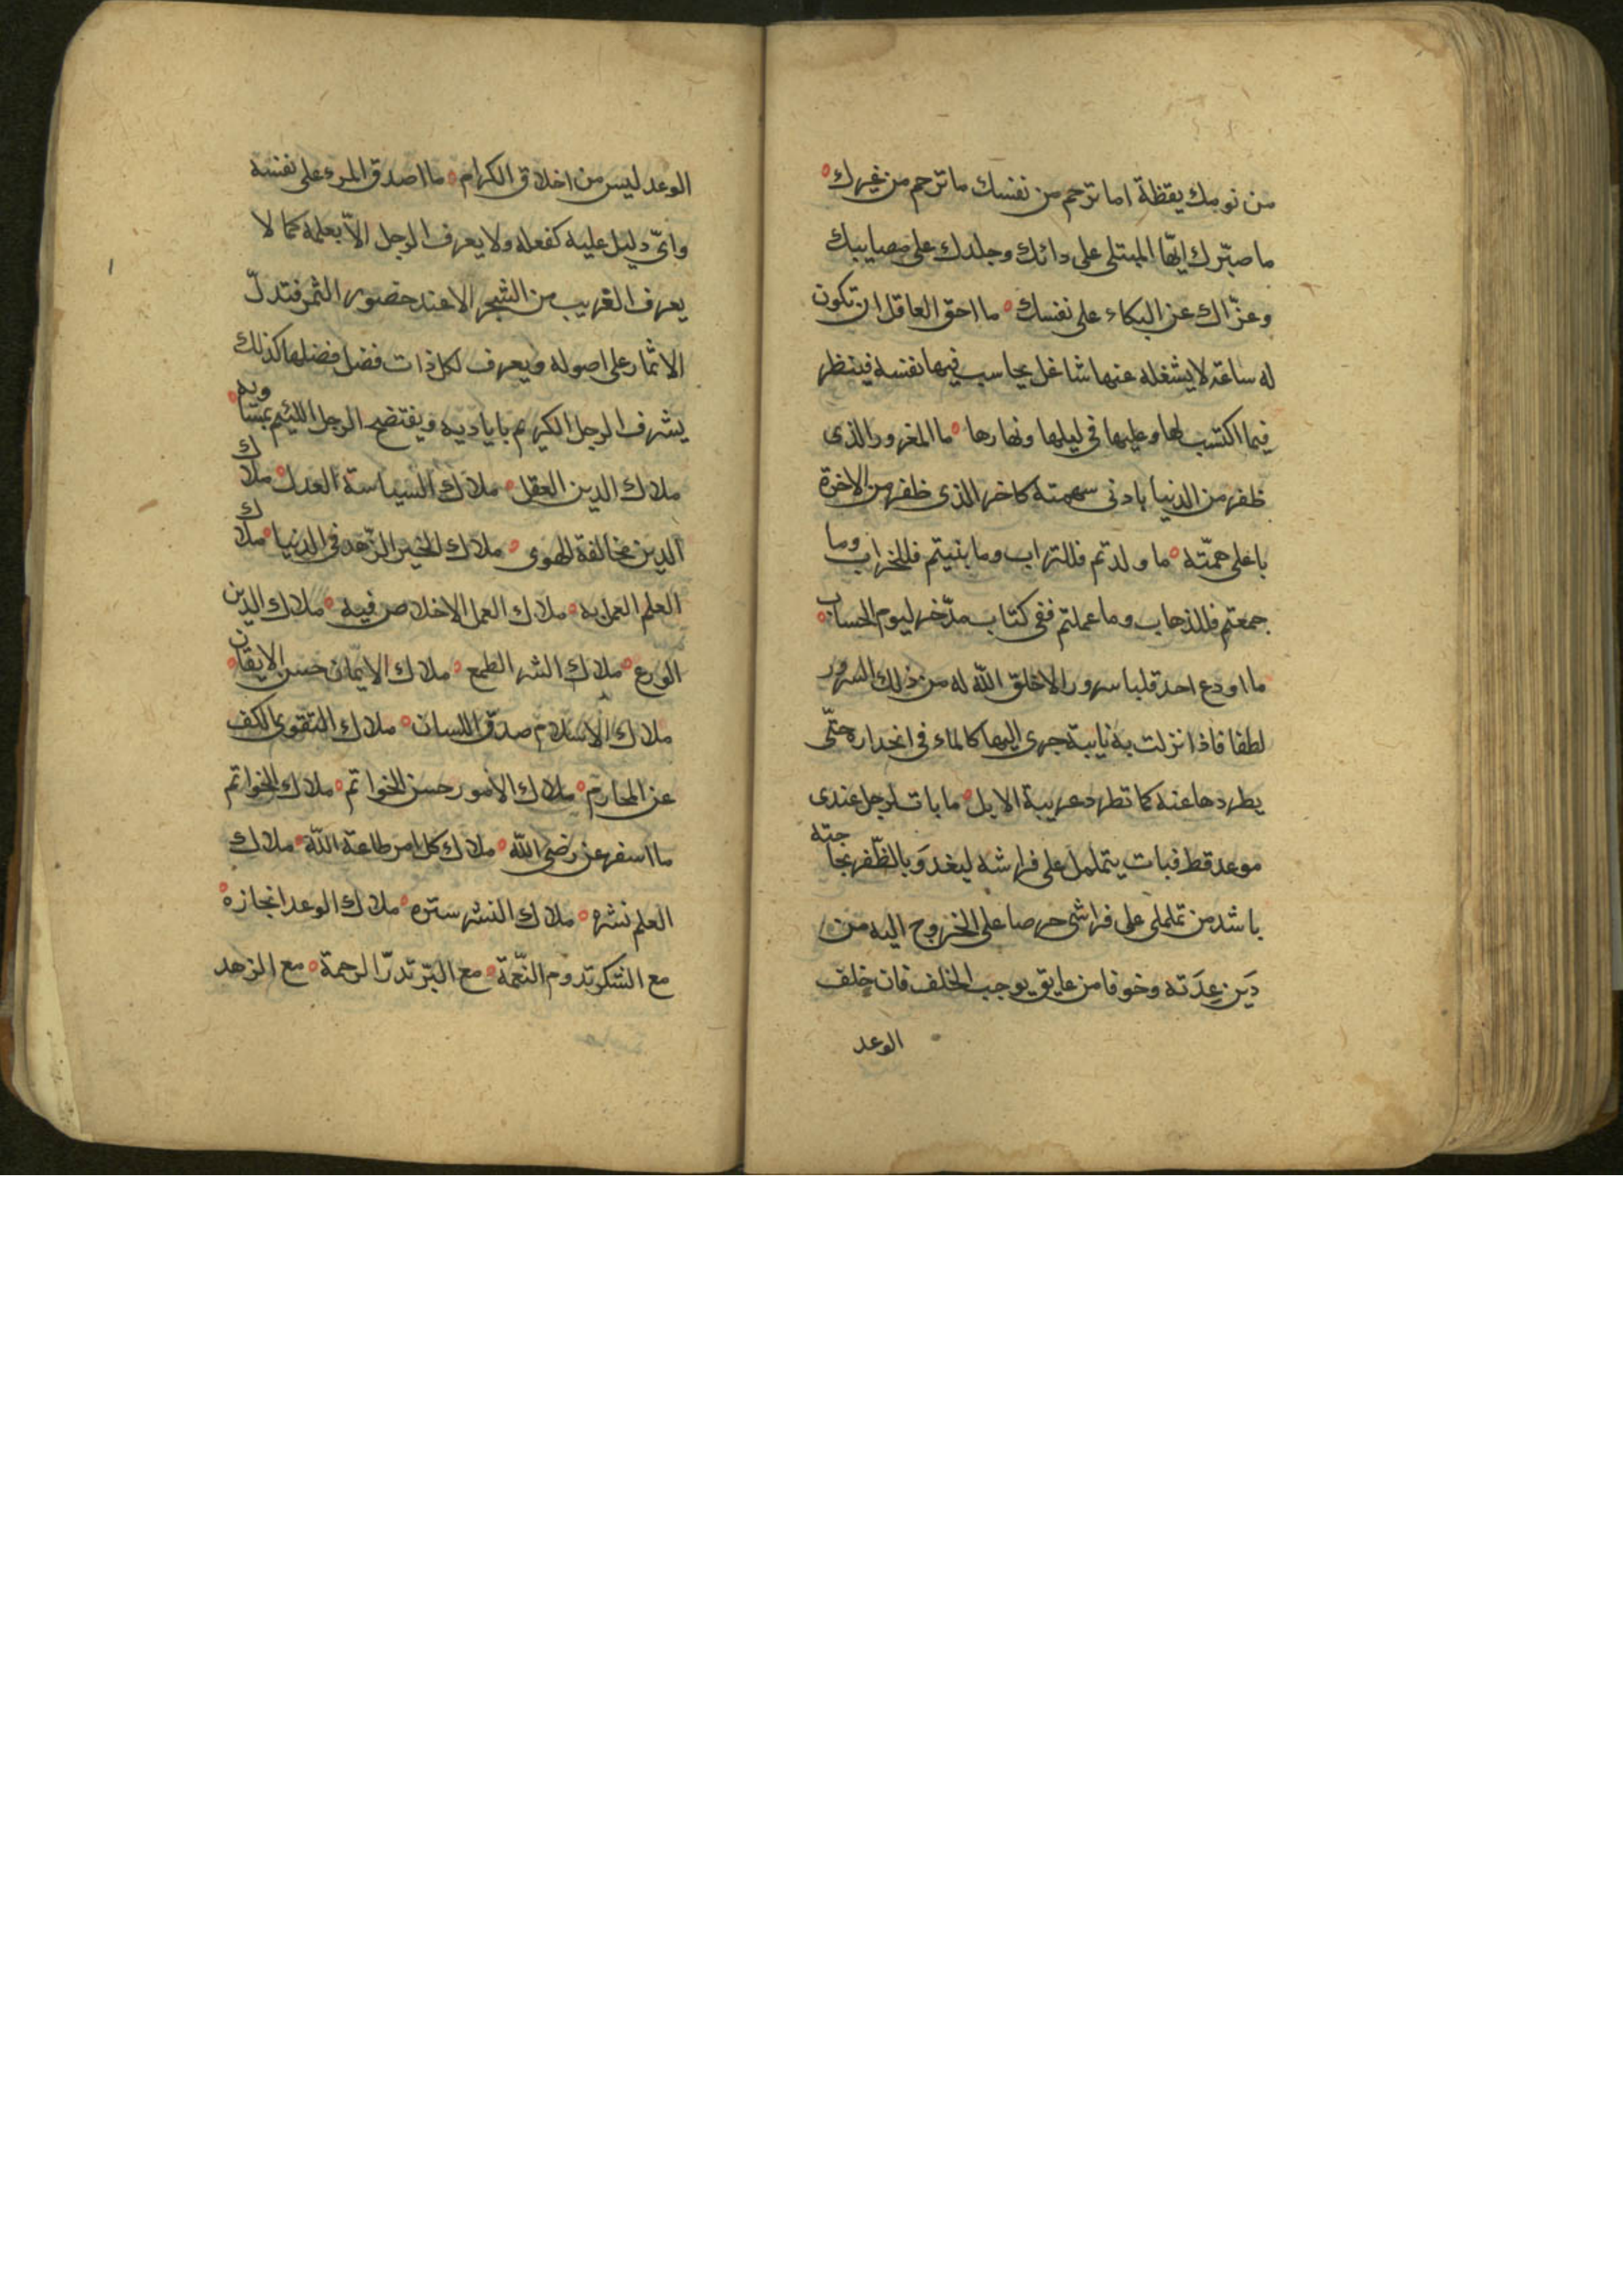 من نومك يقظة اما ترحم من نفسك ما ترحم من غيرك
ما صبّرك ايّها المبتلى على دائك وجلدك على مصايبك
وعزّاك عن البكاء على نفسك ما احق العاقل ان تكون
له ساعة لا يشغله عنها شاغل يحاسب فيها نفسه فينظر
فيما اكتسب لها وعليها في ليلها ونهارها ما المغرور الذى
ظفر من الدنيا بادنى سهمته كاخر الذى ظفر من الاخرة
باعلى همّته ما ولدتم فللتراب وما بنيتم فللخراب وما
جمعتم فللذهاب وما عملتم ففى كتاب مدّخر ليوم الحساب
ما اودع احد قلبا سرورا الا خلق اللّه له من ذلك السرور
لطفا فاذا نزلت به نايبة جرى اليها كالماء في انحداره حتّى
يطردها عنه كما تطرد غريبة الابل ما بات لرجل عندى
موعد قط فبات يتململ على فراشه ليغدَو بالظّفر بحاجته
باشد من تململى على فراشى حرصا على الخروج اليه من
دَين عِدَته وخوفا من عايق يوجب الخلف فان خلف
الوعد
الوعد ليس من اخلاق الكرام ما اصدق المرء على نفسه
واىّ دليل عليه كفعله ولا يعرف الرجل الاّ بعلمه كما لا
يعرف الغريب من الشجر الا عند حضور الثمر فتدلّ
الاثمار على اصوله ويعرف لكل ذات فضل فضلها كذلك
يشرف الرجل الكريم باياديه ويفتضح الرجل اللئيم بمساويه
ملاك الدين العقل ملاك السياسة العدل ملاك
الدين مخالفة الهوى ملاك الخير الزّهد في الدنيا ملاك
العلم العمل به ملاك العمل الاخلاص فيه ملاك الدين
الورع ملاك الشر الطمع ملاك الايمان حسن الايقان
ملاك الاسلام صدق اللسان ملاك التقوى الكف
عن المحارم ملاك الامور حسن الخواتم ملاك الخواتم
ما اسفر عن رضى اللّه ملاك كل امر طاعة اللّه ملاك
العلم نشره ملاك الشر ستره ملاك الوعد انجازه
مع الشكر تدوم النّعمة مع البّر تدرّ الرحمة مع الزهد